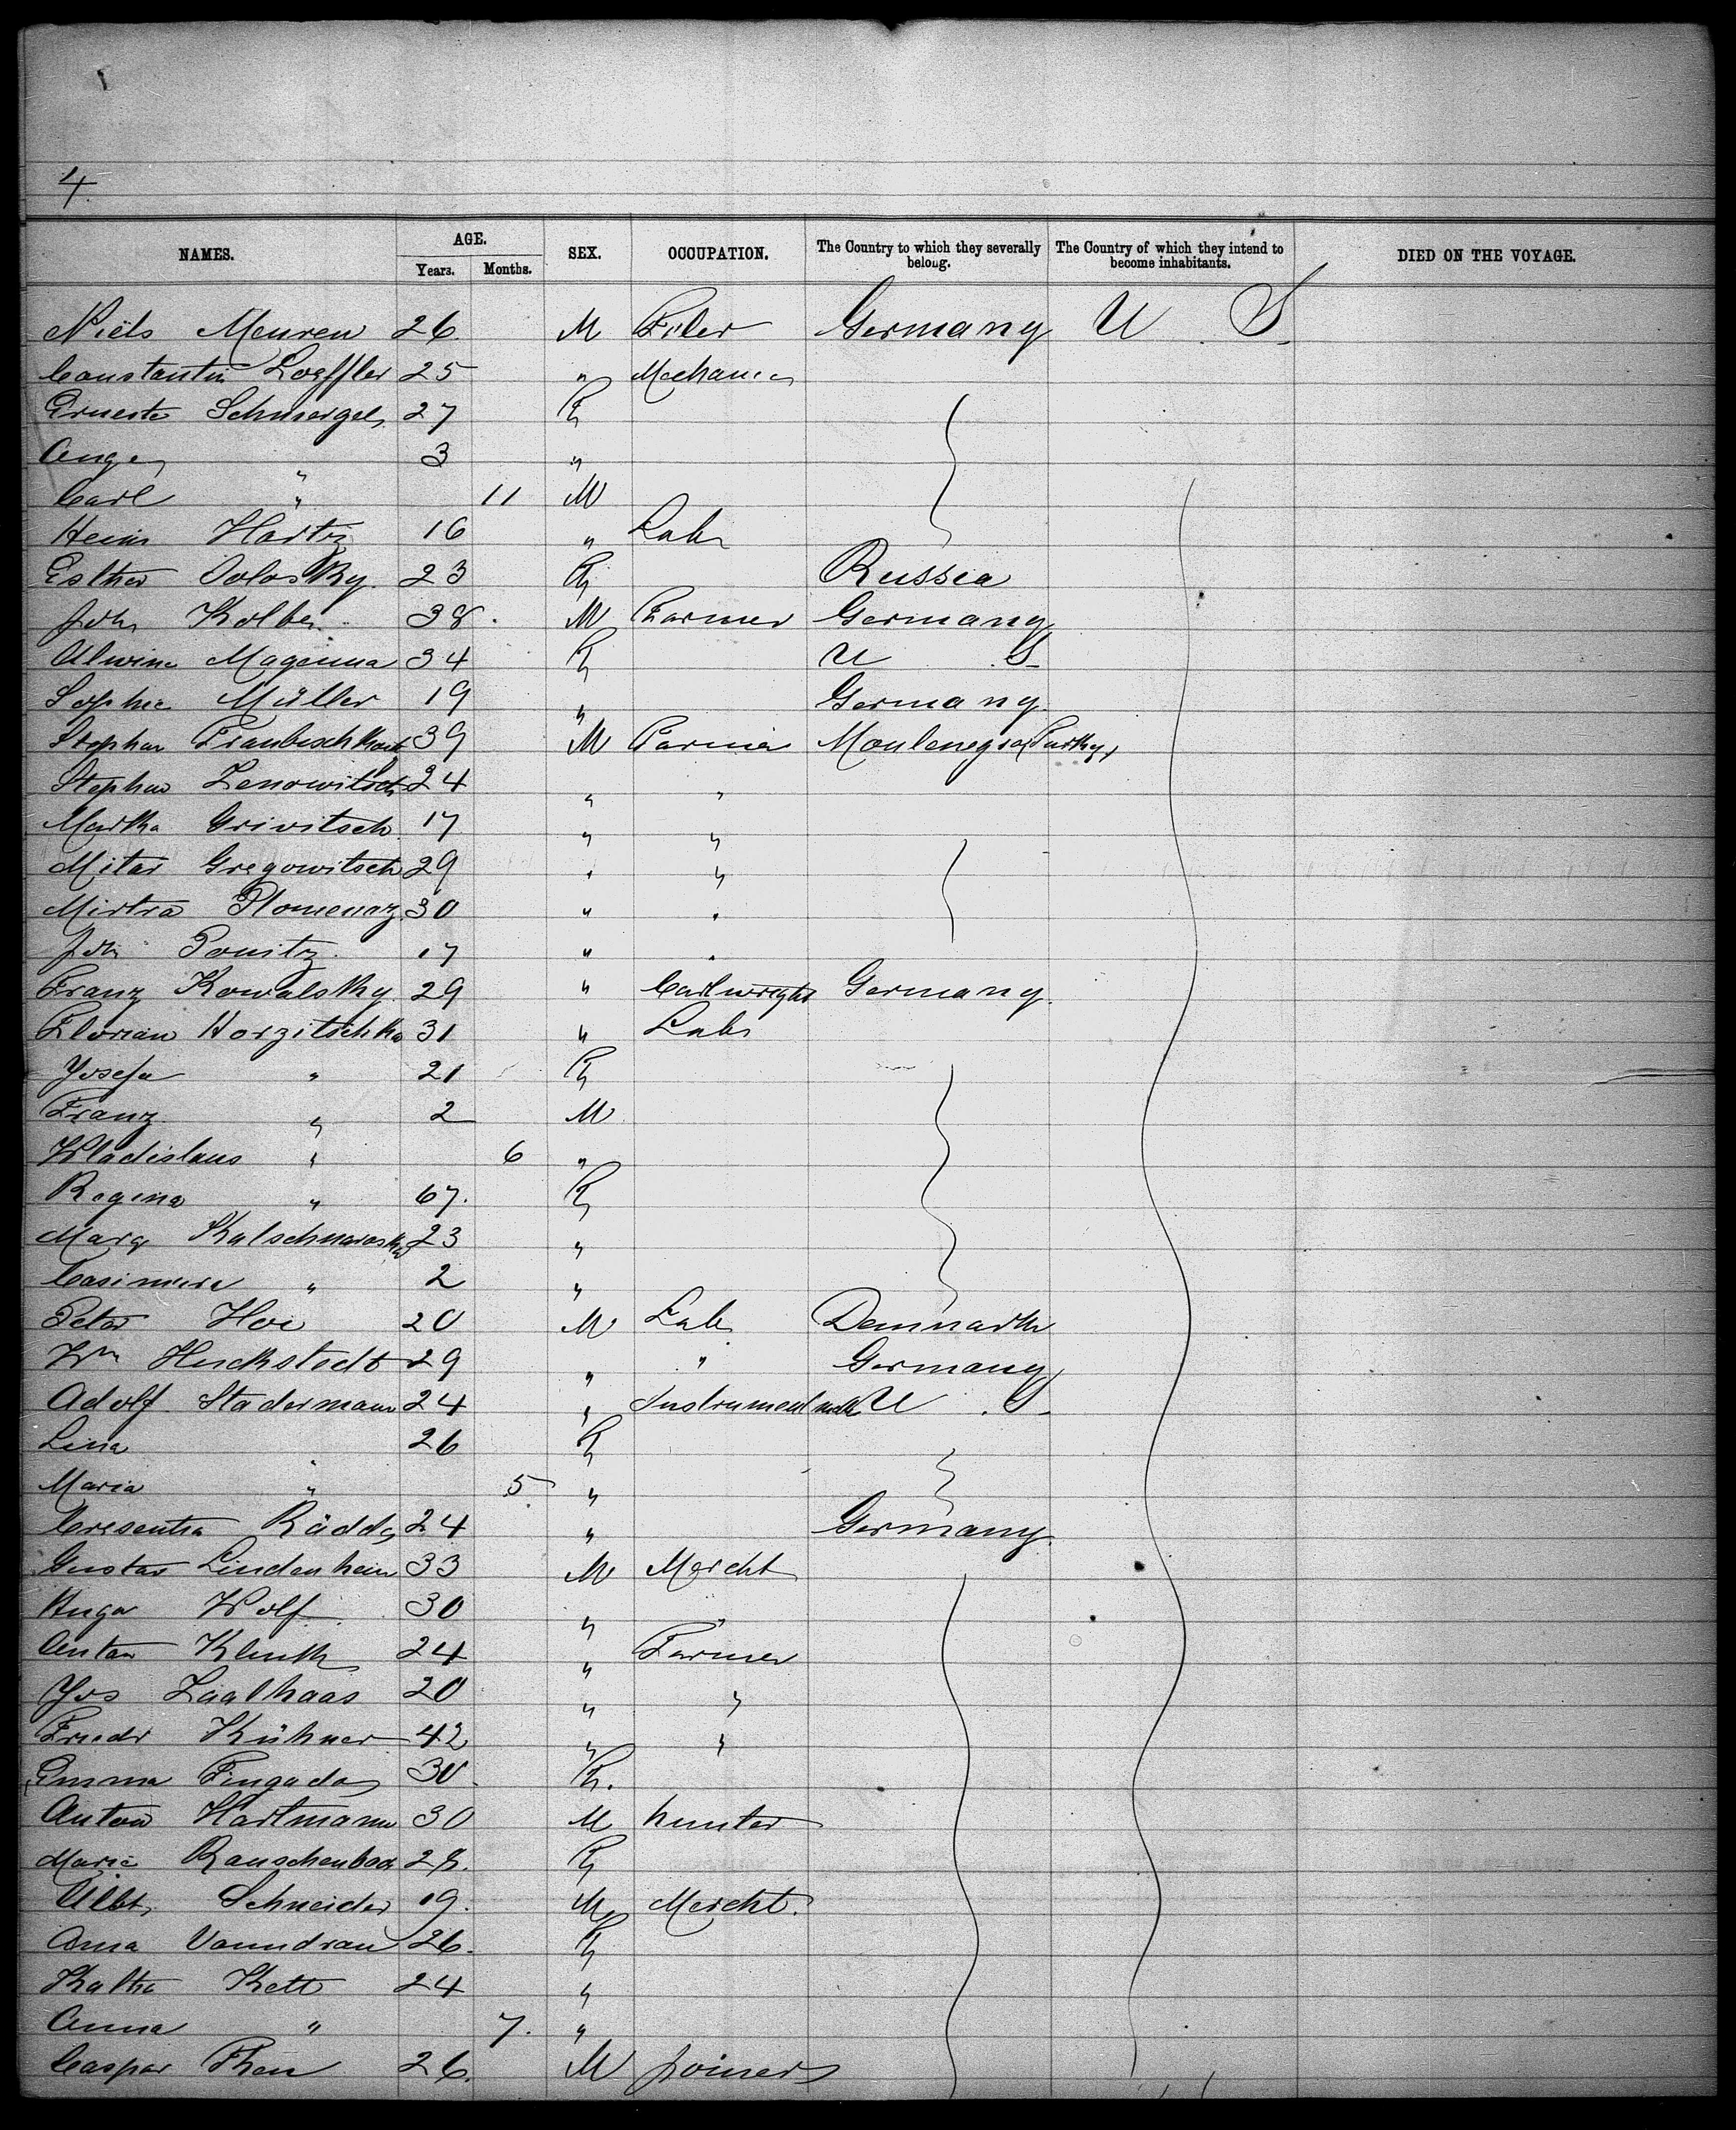 4.
NAMES. AGE. SEX. OCCUPATION. The Country to which they severally belong. The Country of which they intend to become inhabitants. DIED ON THE VOYAGE.
Years. Months.
Niels Meuren 26. M Filer Germany U S.
Constantin Loeffler 25 " Mechanic
Erneste Schmergel 27 F
3 "
Carl " 11 M
Hein Hartz 16 " Lab
Esther 23 F Russia
Joh Kolbe 38. M Farmer Germany
Alwine Magenna 34 F U S
Sophie Müller 19 " Germany
Stephan 39 M Farmer Montenegro (Turkey)
Stephan Zenowitsch 24 " "
Marka Grivitsch 17 " "
Mitar Gregowitsch 29 " "
Mirtra Plomenaz 30 " "
Joh Ponitz 17 " "
Franz Kowalsky 29 " Cartwright Germany
Florian Horzitschka 31 " Lab
Josefa " 21 F
Franz " 2 M
Wladislaus " 6 "
Regina " 67. F
Marg 23 "
Casimira " 2 "
Peter Hoi 20 M Lab Denmark
Wm Huckstedt 29 " " Germany
Adolf Stadermann 24 " Instrument mak U S.
Lina " 26 F
Maria " 5 "
Cresentia 24 " Germany
Gustav Lindenhein 33 M Mercht
Hugo Wolf 30 " "
Anton Klenk 24 " Farmer
Jos Zaalhaas 20 " "
Friedr Kühner 42 " "
Emma Fingado 30. F.
Anton Hartmann 30 M hunter
Marie Rauschenbach 28. F
Albt Schneider 19. M Mercht.
Anna Vanndrau 26. F
Katha Kett 24 "
Anna " 7. "
Caspar Then 26. M joiner